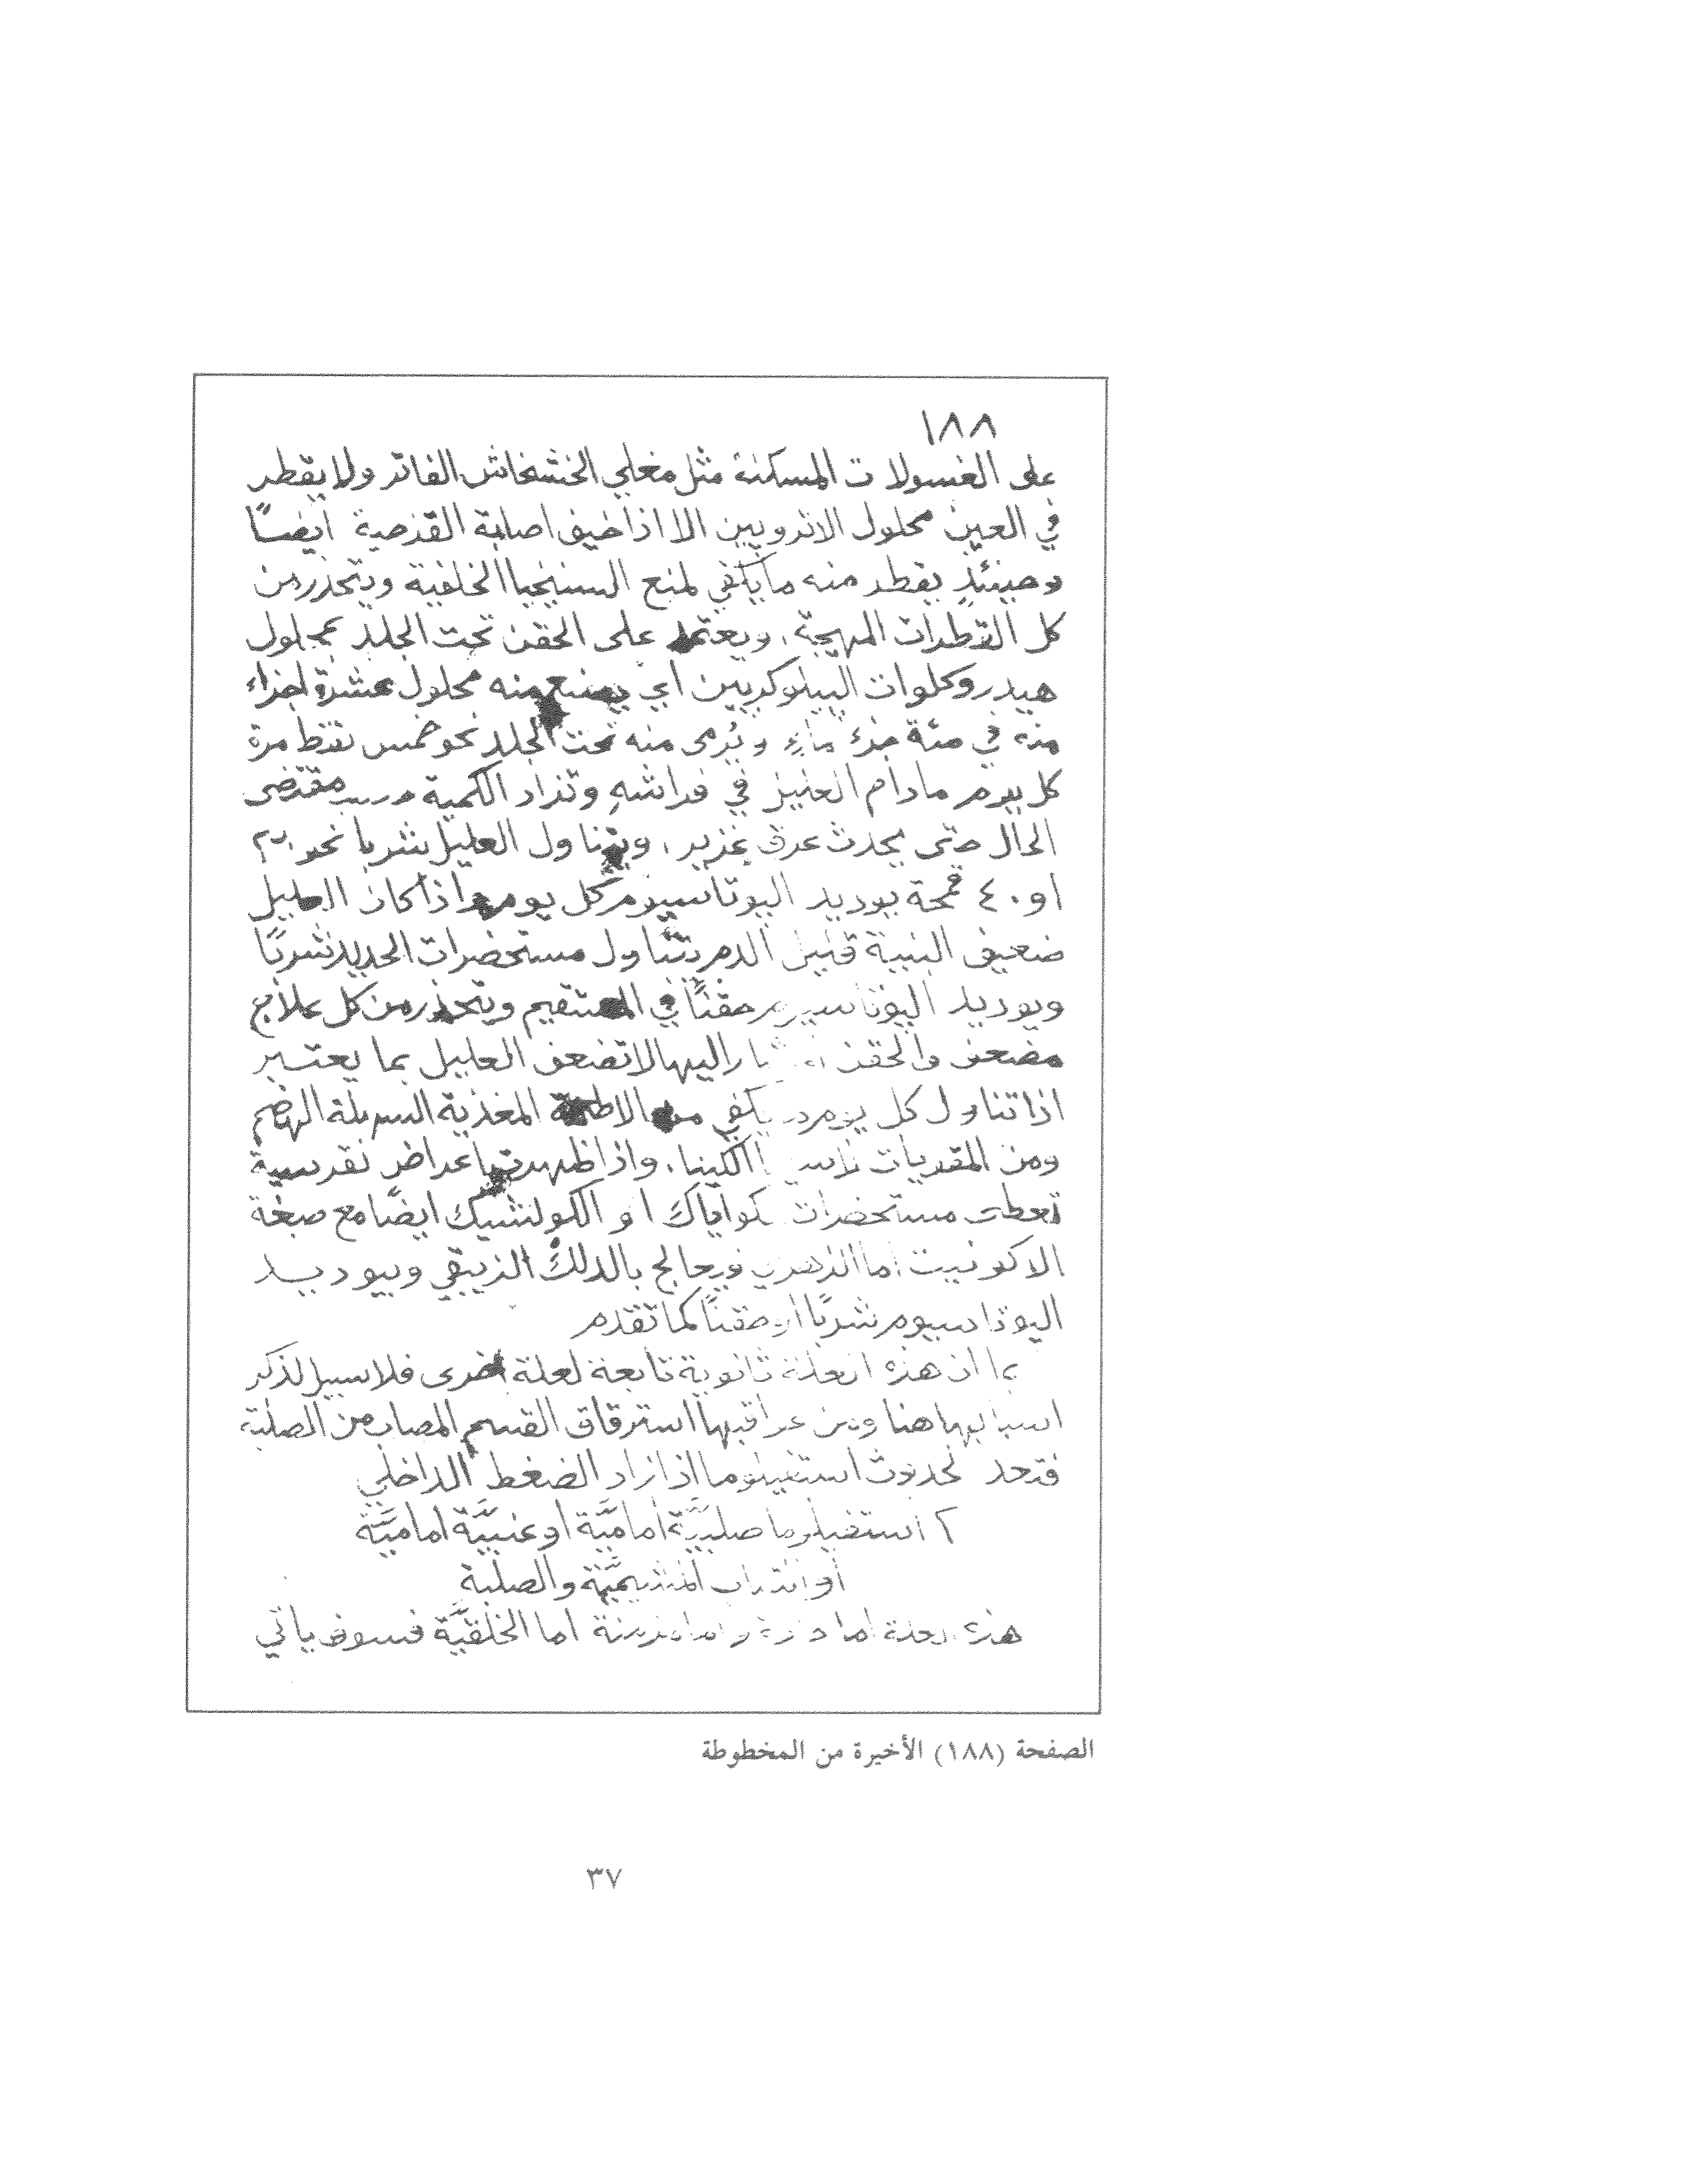 ١٨٨
على الغسولات المسكنة مثل مغلي الخشخاش الفاتر ولا يقطر
في العين محلول الاتروبين الا اذا خيف اصابة القزحية ايضًا
وحينئذٍ يقطر منه ما يكفي لمنع السنيخيا الخلفية ويتحذر من
كل القطرات المهيجة. ويعتمد على الحقن تحت الجلد بمحلول
هيدروكلورات البيلوكربين اي يصنع منه محلول عشرة اجزاء
منه في مئة جزء ماءٍ ويُرمى منه تحت الجلد نحو خمس نقط مرة
كل يوم ما دام العليل في فراشهِ وتزاد الكمية مقتضى
الحال حتى يحدث عرق غزير. ويتناول العليل شربا نحو
او ٤٠ قمحة يوديد البوتاسيوم كل يوم واذا كان العليل
ضعيف البنية قليل الدم يتناول مستحضرات الحديد شربًا
ويوديد البوتاسيوم حقنًا في المستقيم ويتحذر من كل علاج
مضعف والحقن اليها لا تضعف العليل بما يعتبر
اذا تناول كل يوم يكفي من الاطعمة المغذية السهلة الهضم
ومن المقويات الكينا. واذا ظهرت اعراض نقرسية
تعطى مستحضرات كواياك او الكولشيك ايضًا مع صبغة
الاكونيت اما الزهري فيعالج بالدلك الزيبقي وبيوديد
البوتاسيوم شربًا او حقنًا كما تقدم
بما ان هذه العلة ثانوية تابعة لعلة اخرى فلا سبيل لذكر
اسبابها هنا ومن عواقبها استرقاق القسم المصاب من الصلبة
لحدوث استفيلوما اذا زاد الضغط الداخلي
٢ استفيلوما صلبيَّة اماميَّة او عنبيَّة اماميَّة
او التهاب المشيميَّة والصلبة
هذه العلة اما حادة واما مزمنة اما الخلفيَّة فسوف ياتي
الصفحة (١٨٨) الأخيرة من المخطوطة
٣٧